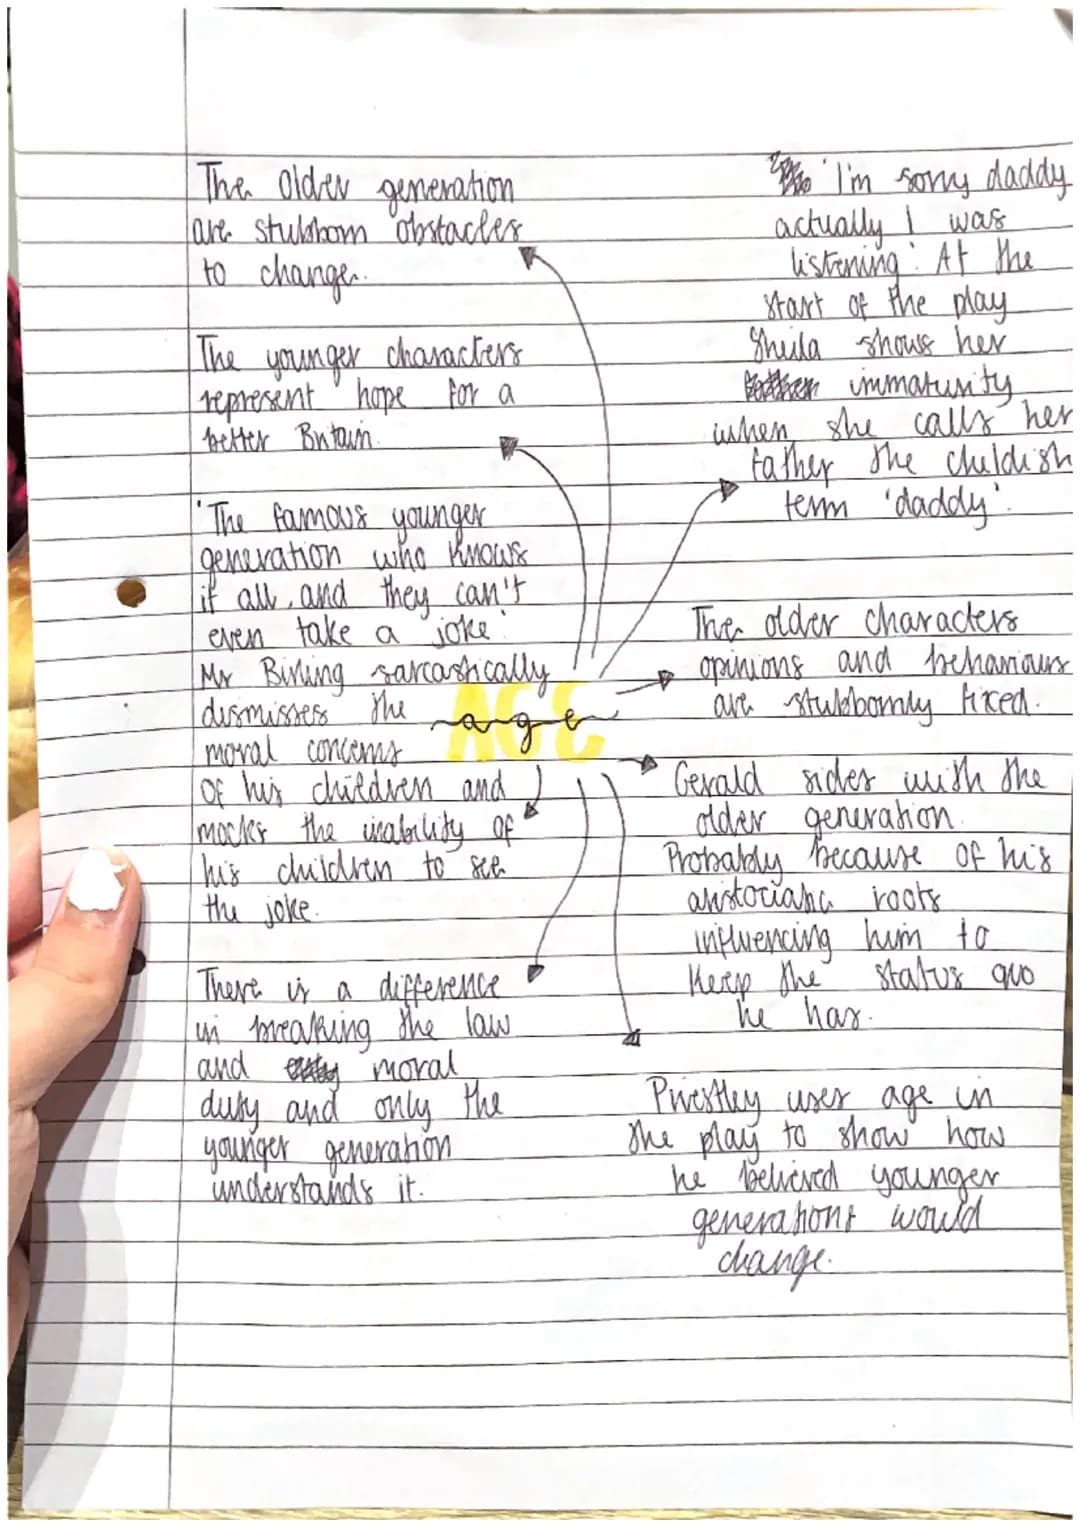 The older generation
are stubborn obstacles
to change.
The younger characters
represent hope for a
better Britain.
'The famous younger
generation who knows
it all, and they can't
even take a joke'.
Mr Birling sarcastically
dismisses the
moral concerns
of his children and
mocks the inability of
his children to see
the joke.
There is a difference
in breaking the law
and moral
duty and only the
younger generation
understands it.
AGE
age
'I'm sorry daddy
actually I was
listening'. At the
start of the play
Sheila shows her
immaturity
when she calls her
father the childish
term 'daddy'.
The older characters
opinions and behaviours
are stubbornly fixed.
Gerald sides with the
older generation.
Probably because of his
aristocratic roots
influencing him to
keep the status quo
he has.
Priestley uses age in
the play to show how
he believed younger
generations would
change.